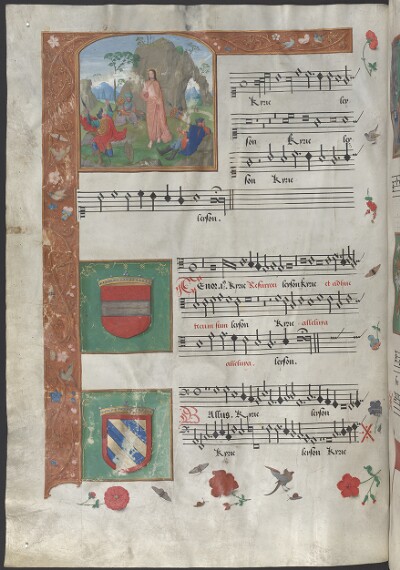 Kyrie ley
son Kyrie ley
son Kyrie
leyson.
Tenor. Kyrie Resurrexi leyson Kyrie et adhuc
tecum sum leyson Kyrie alleluia
alleluia. leyson.
Bassus. Kyrie leyson
Kyrie leyson Kyrie